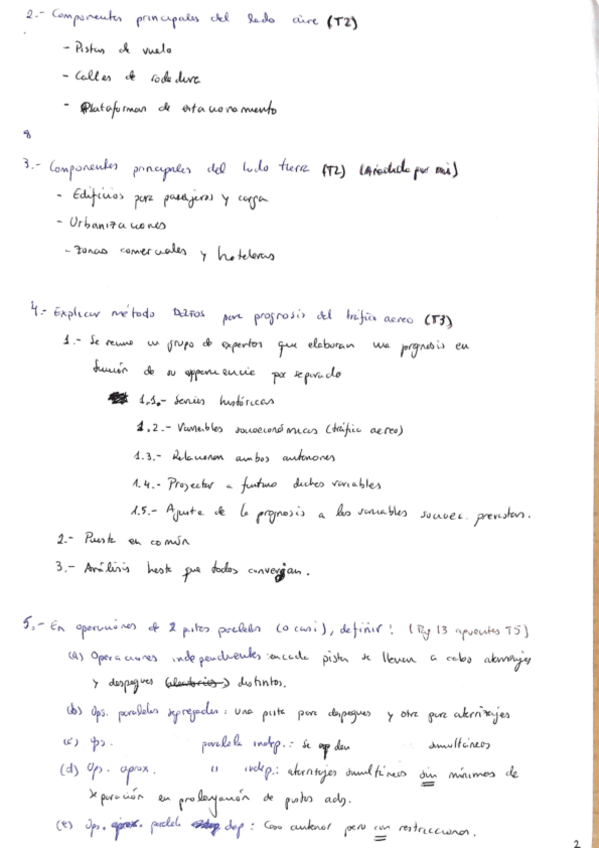 2.- Componentes principales del lado aire (T2)
- Pistas de vuelo
- Calles de rodadura
- Plataformas de estacionamiento
8
3.- Componentes principales del lado tierra (T2) (Añadida por mi)
- Edificios para pasajeros y carga
- Urbanizaciones
- Zonas comerciales y hoteleras
4.- Explicar método para prognosis del tráfico aereo (T3)
1.- Se reune un grupo de expertos que elaboran una prognosis en
función de su por separado
1.1.- Series históricas
1.2.- Variables socioeconómicas (tráfico aereo)
1.3.- Relacionan ambos anteriores
1.4.- Proyectar a futuro dichas variables
1.5.- Ajuste de la prognosis a las variables socioec. previstas.
2.- Puesta en común
3.- Análisis hasta que todos converjan.
5.- En operaciones de 2 pistas paralelas (o casi), definir: (Pg 13 apuntes T5)
(a) Operaciones independientes: en cada pista se llevan a cabo aterrizajes
y despegues distintos.
(b) Ops. paralelas segregadas: una pista para despegues y otra para aterrizajes
(c) Ops. paralela indep.: se simultáneos
(d) Ops. aprox. " indep.: aterrizajes simultáneos sin mínimos de
separación en prolongación de pistas ady.
(e) Ops. aprox. paralela dep: Caso anterior pero con restricciones.
2